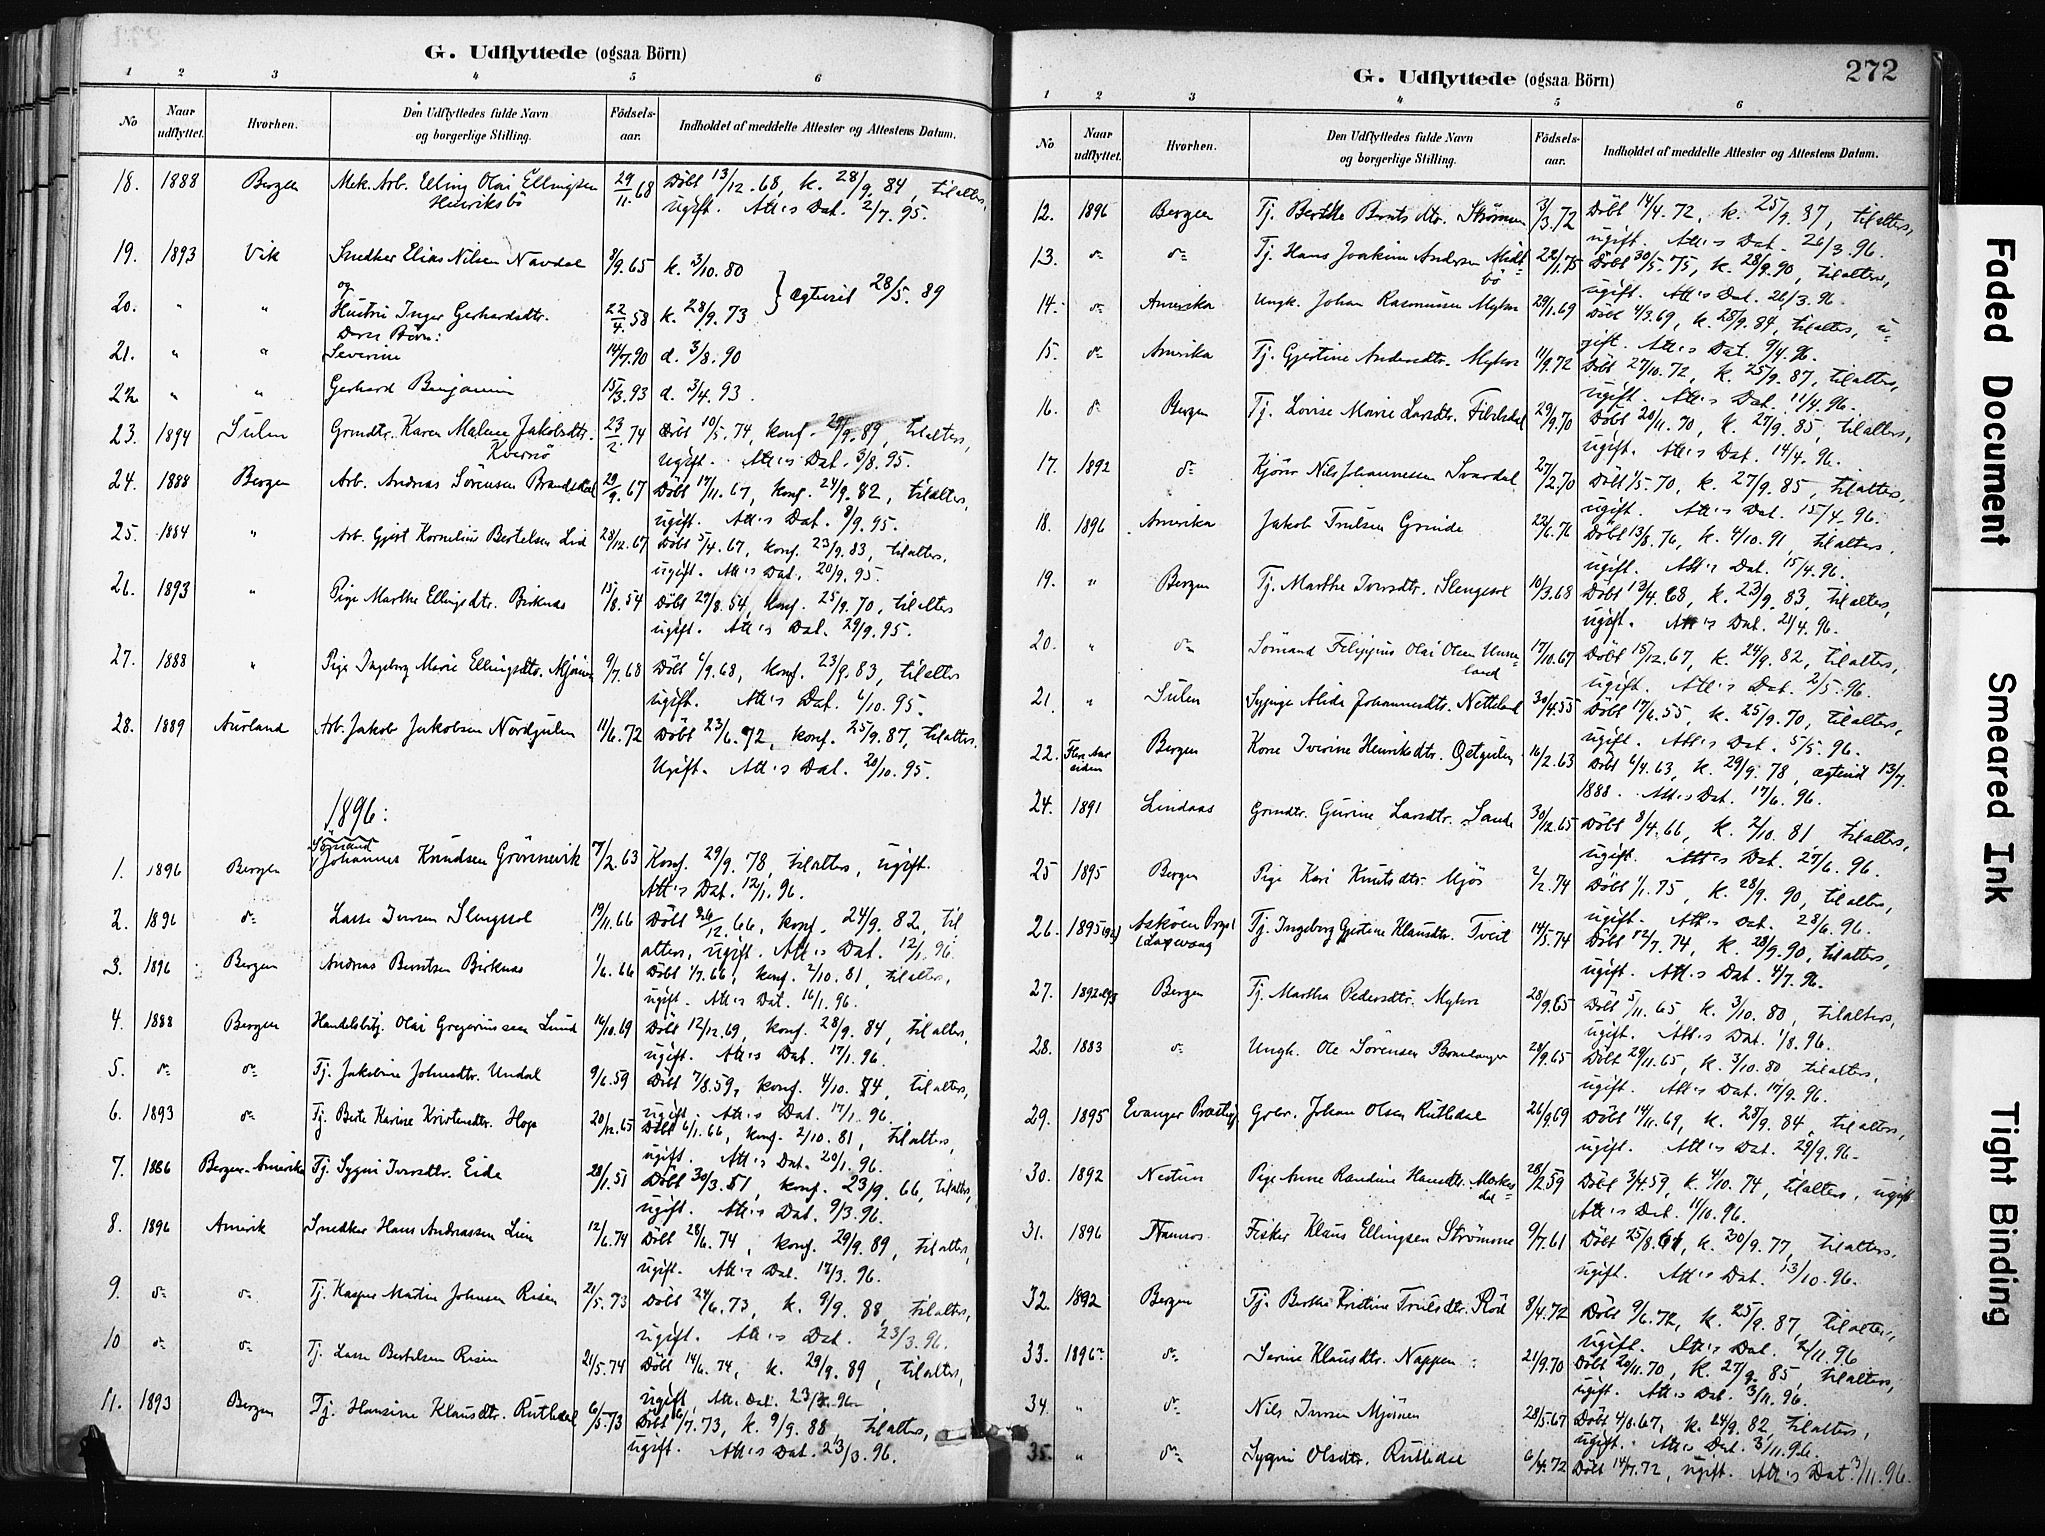 G. Udflyttede (ogsaa Börn)
1 2 3 4 5 6
No Naar udflyttet. Hvorhen. Den Udflyttedes fulde Navn og borgerlige Stilling. Födsels-aar. Indholdet af meddelte Attester og Attestens Datum.
18. 1888 Bergen Mek. Arb. Elling Olai Ellingsen 29/11 68 Döbt 13/12.68, k. 28/9.84, til alters,
Henriksbö ugift. Att:s Dat. 2/7.95.
19. 1893 Vik Snedker Elias Nilsen Navdal 8/9.65 k. 3/10.80
og } ægteviet 28/5.89
20. " " Hustru Inger Gerhardsdtr. 22/4.58 k. 28/9.73
Deres Börn:
21. " " Severine 14/7.90 d. 3/8.90
22 " " Gerhard Benjamin 15/3.93 d. 3/4.93.
23. 1894 Sulen Grmdtr. Karen Malene Jakobsdtr. 23/2.74 Döbt 10/5.74, konf. 29/9.89, til alters,
Kversö ugift. Att:s Dat. 3/8.95.
24. 1888 Bergen Arb. Andreas Sörensen Brandsdal 29/9.67 Döbt 17/11.67, konf. 24/9.82, til alters,
ugift. Att:s Dat. 8/9.95.
25. 1884 " Arb. Gjert Kornelius Bertelsen Lid 28/12.67 Döbt 5/4.67, konf. 23/9.83, til alters,
ugift. Att:s Dat. 20/9.95.
26. 1893 " Pige Marthe Ellingsdtr. Birknæs 15/8.54 Döbt 27/8.54, konf. 25/9.70, til alters
ugift. Att:s Dat. 29/9.95.
27. 1888 " Pige Ingeborg Marie Ellingsdtr. Mjömen 9/7.68 Döbt 6/9.68, konf. 23/9.83, til alters
ugift. Att:s Dat. 6/10.95.
28. 1889 Aurland Arb. Jakob Jakobsen Nordgulen 11/6.72 Döbt 23/6.72, konf. 25/9.87, til alters.
Ugift. Att:s Dat. 20/10.95.
1896:
Sömand
1. 1896 Bergen Johannes Knudsen Grönnevik 7/2.63 Konf. 29/9.78, til alters, ugift.
Att:s Dat. 12/1.96.
2. 1896 do Lasse Iversen Slengesol 19/11.66 Döbt 26/12.66, konf. 24/9.82, til
alters, ugift. Att:s Dat. 12/1.96.
3. 1896 Bergen Andreas Berntsen Birknæs 1/6.66 Döbt 1/7.66, konf. 2/10.81, til alters,
ugift. Att:s Dat. 16/1.96.
4. 1888 Bergen Handelsbtj. Olai Gregeriussen Lund 16/10.69 Döbt 12/12.69, konf. 28/9.84, til alters,
ugift. Att:s Dat. 17/1.96.
5. do do Tj. Jakobine Johnsdtr. Undal 9/6.59 Döbt 7/8.59, konf. 4/10.74, til alters,
ugift. Att:s Dat. 17/1.96.
6. 1893 do Tj. Berte Karine Kristensdtr. Hope 20/12.65 Döbt 6/1.66, konf. 2/10.81, til alters,
ugift. Att:s Dat. 20/1.96.
7. 1886 Bergen-Amerika Tj. Sygni Iversdtr. Eide 28/1.51 Döbt 30/3.51, konf. 23/9.66, til alters,
ugift. Att:s Dat. 9/3.96.
8. 1896 Amerik Snedker Hans Andreassen Lien 12/6.74 Döbt 28/6.74, konf. 29/9.89, til alters,
ugift. Att:s Dat. 17/3.96.
9. do do Tj. Kasper Martin Johnsen Risen 21/5.73 Döbt 24/6.73, k. 9/9.88, til alters,
ugift. Att:s Dat. 23/3.96.
10 do do Tj. Lasse Bertelsen Risen 21/5.74 Döbt 14/6.74, k. 29/9.89, til alters,
ugift. Att:s Dat. 23/3.96.
11. 1893 Bergen Tj. Hansine Klausdtr. Rutledal 6/5.73 Döbt 6/7.73, k. 9/9.88 til alters,
ugift. Att:s Dat. 23/3.96.
272
G. Udflyttede (ogsaa Börn)
1 2 3 4 5 6
No Naar udflyttet. Hvorhen. Den Udflyttedes fulde Navn og borgerlige Stilling. Födsels-aar. Indholdet af meddelte Attester og Attestens Datum.
12. 1896 Bergen Tj. Berthe Berntsdtr. Strömmen 3/3.72 Döbt 14/4.72, k. 25/9.87, til alters,
ugift. Att:s Dat. 26/3.96.
13. do do Tj. Hans Joakim Andersen Midtbö 22/1.75 Döbt 30/5.75, k. 28/9.90, til alters,
ugift. Att:s Dat. 26/3.96.
14. do Amerika Ungk. Johan Rasmussen Myhre 29/1.69 Döbt 4/3.69, k. 28/9.84, til alters, u-
gift. Att:s Dat. 9/4.96.
15. do Amerika Tj. Gjertine Andersdtr. Myhre 11/9.72 Döbt 27/10.72, k. 25/9.87, til alters,
ugift. Att:s Dat. 11/4.96.
16. do Bergen Tj. Lovise Marie Larsdtr. 29/9.70 Döbt 20/11.70, k. 27/9.85, til alters,
ugift. Att:s Dat. 14/4.96.
17. 1892 do Nils Johannessen Svardal 27/2.70 Döbt 1/5.70, k. 27/9.85, til alters,
ugift. Att:s Dat. 15/4.96.
18. 1896 Amerika Jakob Trulsen Grinde 22/6.76 Döbt 13/8.76, k. 4/10.91, til alters.
ugift. Att:s Dat. 15/4.96.
19. " Bergen Tj. Marthe Iversdtr. Slengesol 10/3.68 Döbt 13/4.68, k. 23/9.83, til alters,
ugift. Att:s Dat. 21/4.96.
20. " do Sömand Filippus Olai Olsen Unne-
land 17/10.67 Döbt 15/12.67, k. 24/9.82, til alters,
ugift. Att:s Dat. 2/5.96.
21. " Sulen Sypige Alida Johannesdtr. Netteland 30/4.55 Döbt 17/6.55, k. 25/9.70, til alters,
ugift. Att:s Dat. 5/5.96.
22. Flere Aar siden Bergen Kone Iverine Henriksdtr. Östgulen 16/2.63 Döbt 6/4.63, k. 29/9.78, ægteviet 13/7
1888. Att:s Dat. 17/6.96.
24. 1891 Lindaas Grmdtr. Gurine Larsdtr. Sande 30/12.65 Döbt 8/4.66, k. 2/10.81 til alters,
ugift. Att:s Dat. 27/6.96.
25 1895 Bergen Pige Kari Knutsdtr. Mjös 2/2.74 Döbt 1/1.75, k. 28/9.90, til alters,
ugift. Att:s Dat. 28/6.96.
26. 1895 Asköen Prgd. (Laxevaag Tj. Ingeborg Gjertine Klausdtr. Tveit 14/5.74 Döbt 12/7.74, k. 28/9.90, til alters,
ugift. Att:s Dat. 4/7.96.
27. 1892 Bergen Tj. Martha Pedersdtr. Myhre 28/9.65 Döbt 5/11.65, k. 3/10.80, til alters,
ugift. Att:s Dat. 1/8.96.
28. 1883 do Ungk. Ole Sörensen Brandanger 28/9.65 Döbt 29/11.65, k. 3/10.80, til alters,
ugift. Att:s Dat. 17/9.96.
29. 1895 Evanger Præstegj. Grbr. Johan Olsen Rutledal 26/9.69 Döbt 14/11.69, k. 28/9.84, til alters,
ugift. Att:s Dat. 29/9.96.
30. 1892 Nestun Pige Anne Randine Hansdtr. 28/2.59 Döbt 3/4.59, k. 4/10.74, til alters, ugift
Att:s Dat. 11/10.96.
31. 1896 Namsos. Fisker Klaus Ellingsen Strömme 9/7.61 Döbt 25/8.61, k. 30/9.77, til alters.
ugift. Att:s Dat. 13/10.96.
32. 1892 Bergen Tj. Berthe Kristine Trulsdtr. Röd 8/4.72 Döbt 9/6.72, k. 25/9.87, til alters,
ugift. Att:s Dat. 2/11.96
33. 1896 do Serine Klausdtr. Nappen 21/9.70 Döbt 20/11.70, k. 27/9.85, til alters,
ugift. Att:s Dat. 3/11.96.
34. " do Nils Iversen Mjömen 28/5.67 Döbt 4/8.67, k. 24/9.82, til alters,
ugift. Att:s Dat. 3/11.96.
35. " do Sygni Olsdtr. Rutledal 6/4.72 Döbt 14/7.72, ugift. Att:s Dat. 3/11.96.
Faded Document
Smeared Ink
Tight Binding